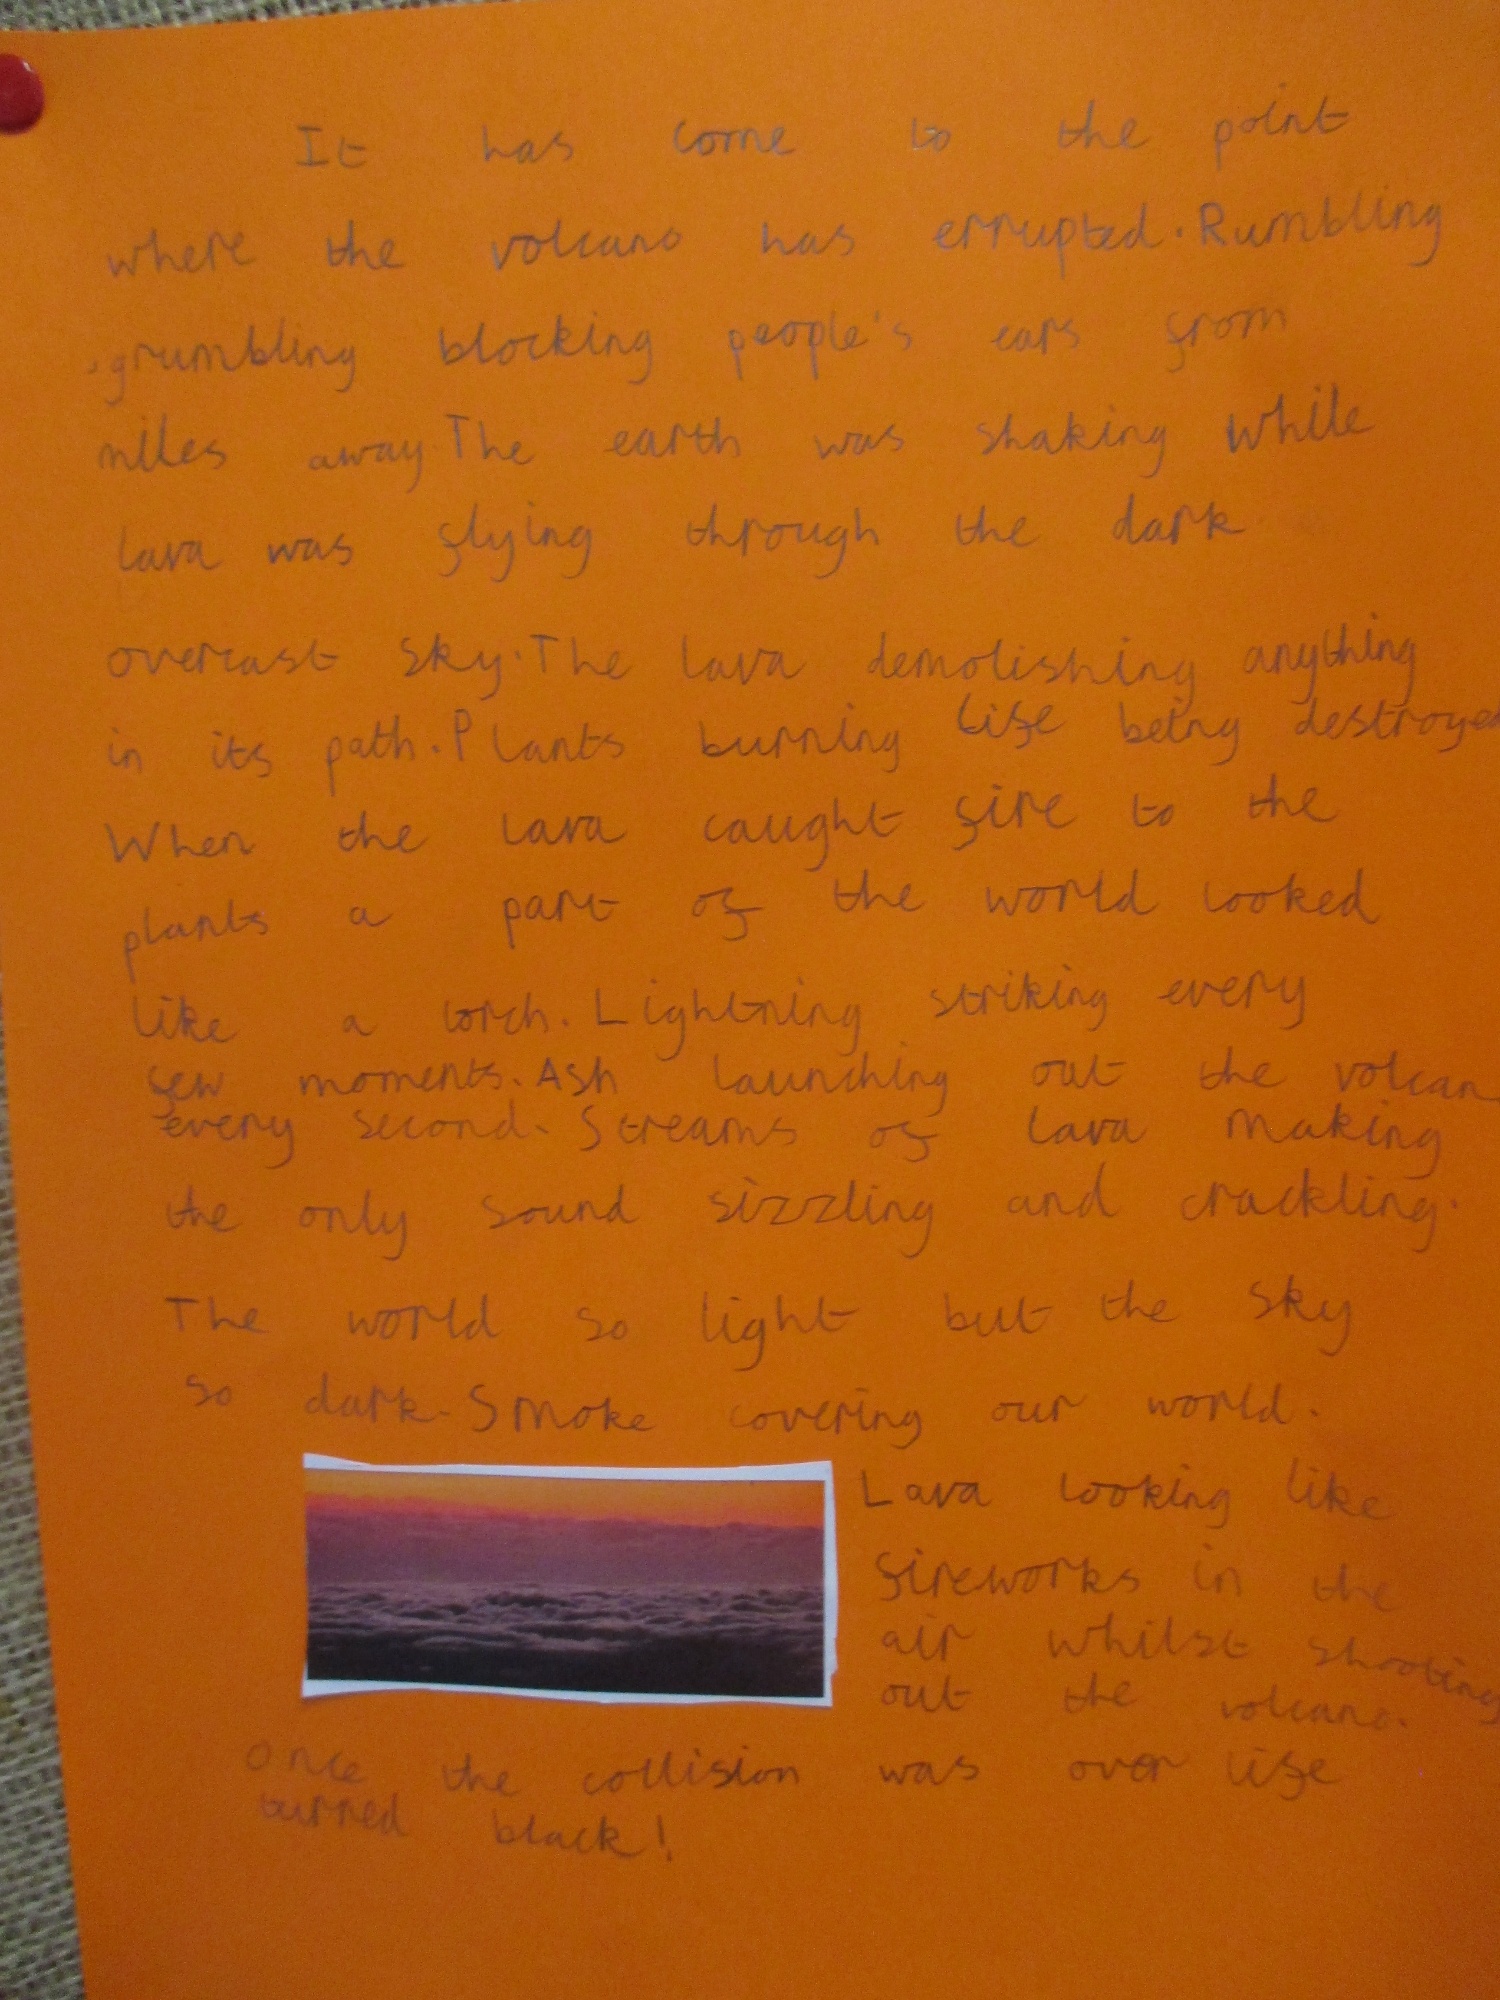 It has come to the point
where the volcano has errupted. Rumbling
,grumbling blocking people's ears from
miles away. The earth was shaking while
lava was flying through the dark
overcast sky. The lava demolishing anything
in its path. Plants burning life being destroyed
When the lava caught fire to the
plants a part of the world looked
like a torch. Lightning striking every
few moments. Ash launching out the volcan
every second. Streams of lava making
the only sound sizzling and crackling.
The world so light but the sky
so dark. Smoke covering our world.
Lava looking like
fireworks in the
air whilst shooting
out the volcano.
Once the collision was over life
turned black!